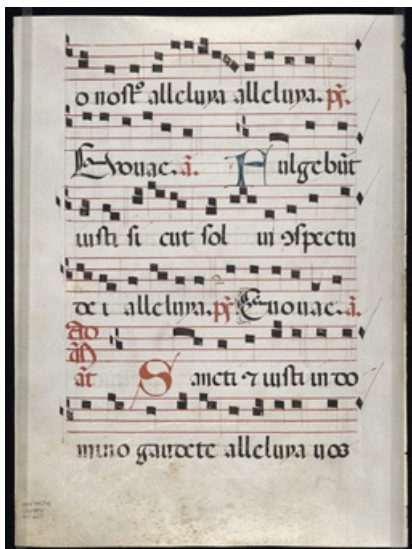 o nost° alleluya alleluya. ps̄.
Evouae. a͞. Fulgebūt
iusti si cut sol in ↄspectu
de i alleluya. ps̄. Evouae. a͞.
Ad
a͞t Sancti ⁊ iusti in do
mino gaudete alleluya uos